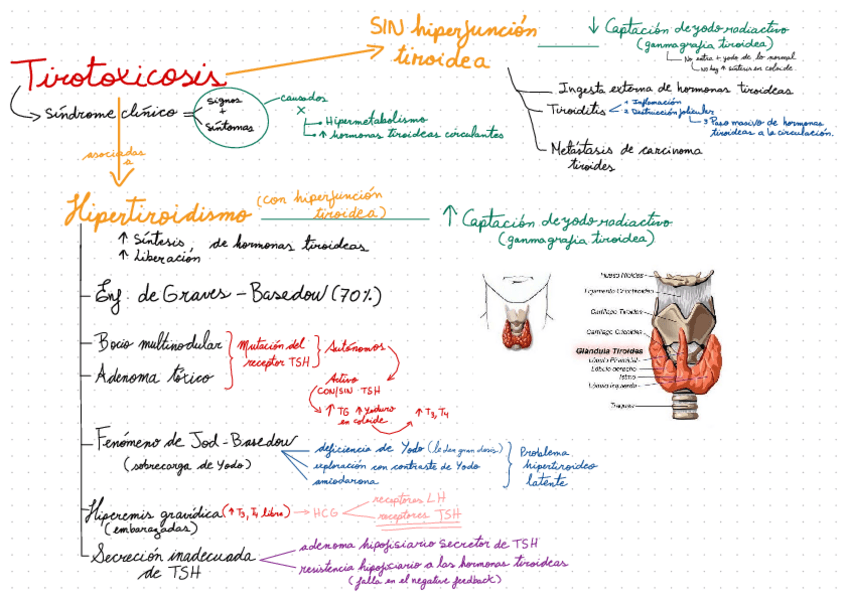 Tirotoxicosis
Síndrome clínico =
signos
+
síntomas
causados
x
Hipermetabolismo
↑ hormonas tiroideas circulantes
SIN hiperfunción
tiroidea
↓ Captación de yodo radiactivo
(ganmagrafía tiroidea)
No entra + yodo de lo normal
No hay ↑ síntesis en coloide.
Ingesta externa de hormonas tiroideas
Tiroiditis
1 Inflamación
2 Destrucción folicular
3 Paso masivo de hormonas
tiroideas a la circulación.
Metástasis de carcinoma
tiroides
asociadas
a
Hipertiroidismo
(con hiperfunción
tiroidea)
↑ Captación de yodo radiactivo
(ganmagrafía tiroidea)
↑ Síntesis, de hormonas tiroideas
↑ Liberación
Enf. de Graves - Basedow (70%)
Bocio multinodular
Adenoma tóxico
Mutación del
receptor TSH
Autónomos
Activo
CON/SIN TSH
↑ TG ↑ Yoduro
en coloide
↑ T3, T4
Fenómeno de Jod-Basedow
(sobrecarga de yodo)
deficiencia de Yodo (le dan gran dosis)
exploración con contraste de Yodo
amiodarona
Problema
hipertiroideo
latente
Hiperemis gravídica (↑ T3, T4 libre)
(embarazadas)
HCG
receptores LH
receptores TSH
Secreción inadecuada
de TSH
adenoma hipofisiario secretor de TSH
resistencia hipofisiario a las hormonas tiroideas
(falla en el negative feedback)
Hueso Hioides
Cartílago Tiroides
Cartílago Cricoides
Glándula Tiroides
Lóbulo Piramidal
Lóbulo derecho
Istmo
Lóbulo izquierdo
Traquea